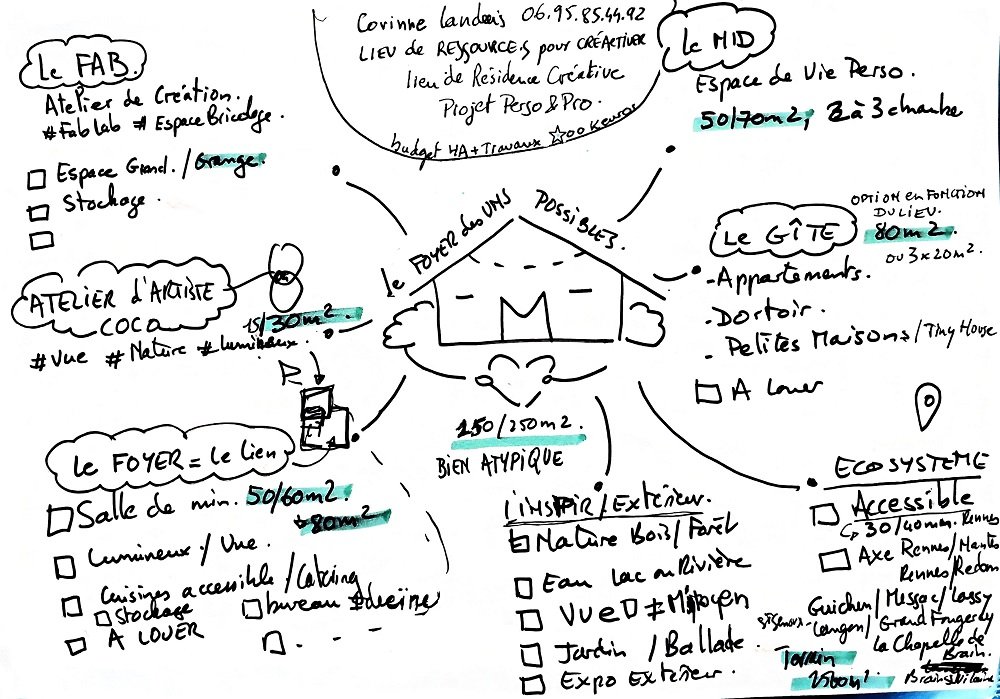 Corinne Landais 06.95.85.44.92
LIEU de RESSOURCES pour CRÉACTIVER
lieu de Résidence Créative
Projet Perso & Pro.
budget HA + Travaux ☆00 K euros
Le FAB.
Atelier de Création.
#FabLab # Espace Bricolage.
Espace Grand. / Grange.
Stockage.
Le NID
Espace de Vie Perso.
50/70m2, 2 à 3 chambre
le FOYER des UNS POSSIBLES.
OPTION en FONCTION
DU LIEU.
Le GÎTE 80m2.
ou 3x20m2.
- Appartements.
- Dortoir.
- Petites Maisons / Tiny House
A Louer
ATELIER d'ARTISTE
COCO
15/30m2
# Vue # Nature # Lumineux.
Le FOYER = Le Lien
Salle de min. 50/60m2.
80m2
Lumineux / Vue.
Cuisines accessible / Catering
Stockage
bureau #
A LOUER
150/250m2.
BIEN ATYPIQUE
L'INSPIR / Extérieur.
Nature Bois / Forêt
Eau Lac ou Rivière
Vue D # Mitoyen
Jardin / Ballade
Expo Extérieur.
ECOSYSTEME
Accessible
30/40mn. Rennes
Axe Rennes / Nantes
Rennes / Redon
Guichen / Messac / Lassy
Langon / Grand Fougeray
La Chapelle de
Brain.
Brain s/ Vilaine
Terrain
1500m2